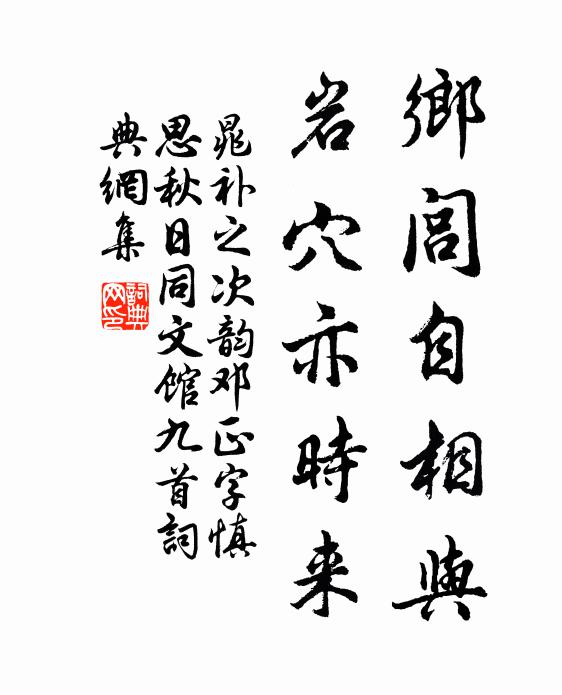 鄉閭自相與
岩穴亦時来
晁补之次韵邓正字慎
思秋日同文馆九首詞
典網集
詞典網印